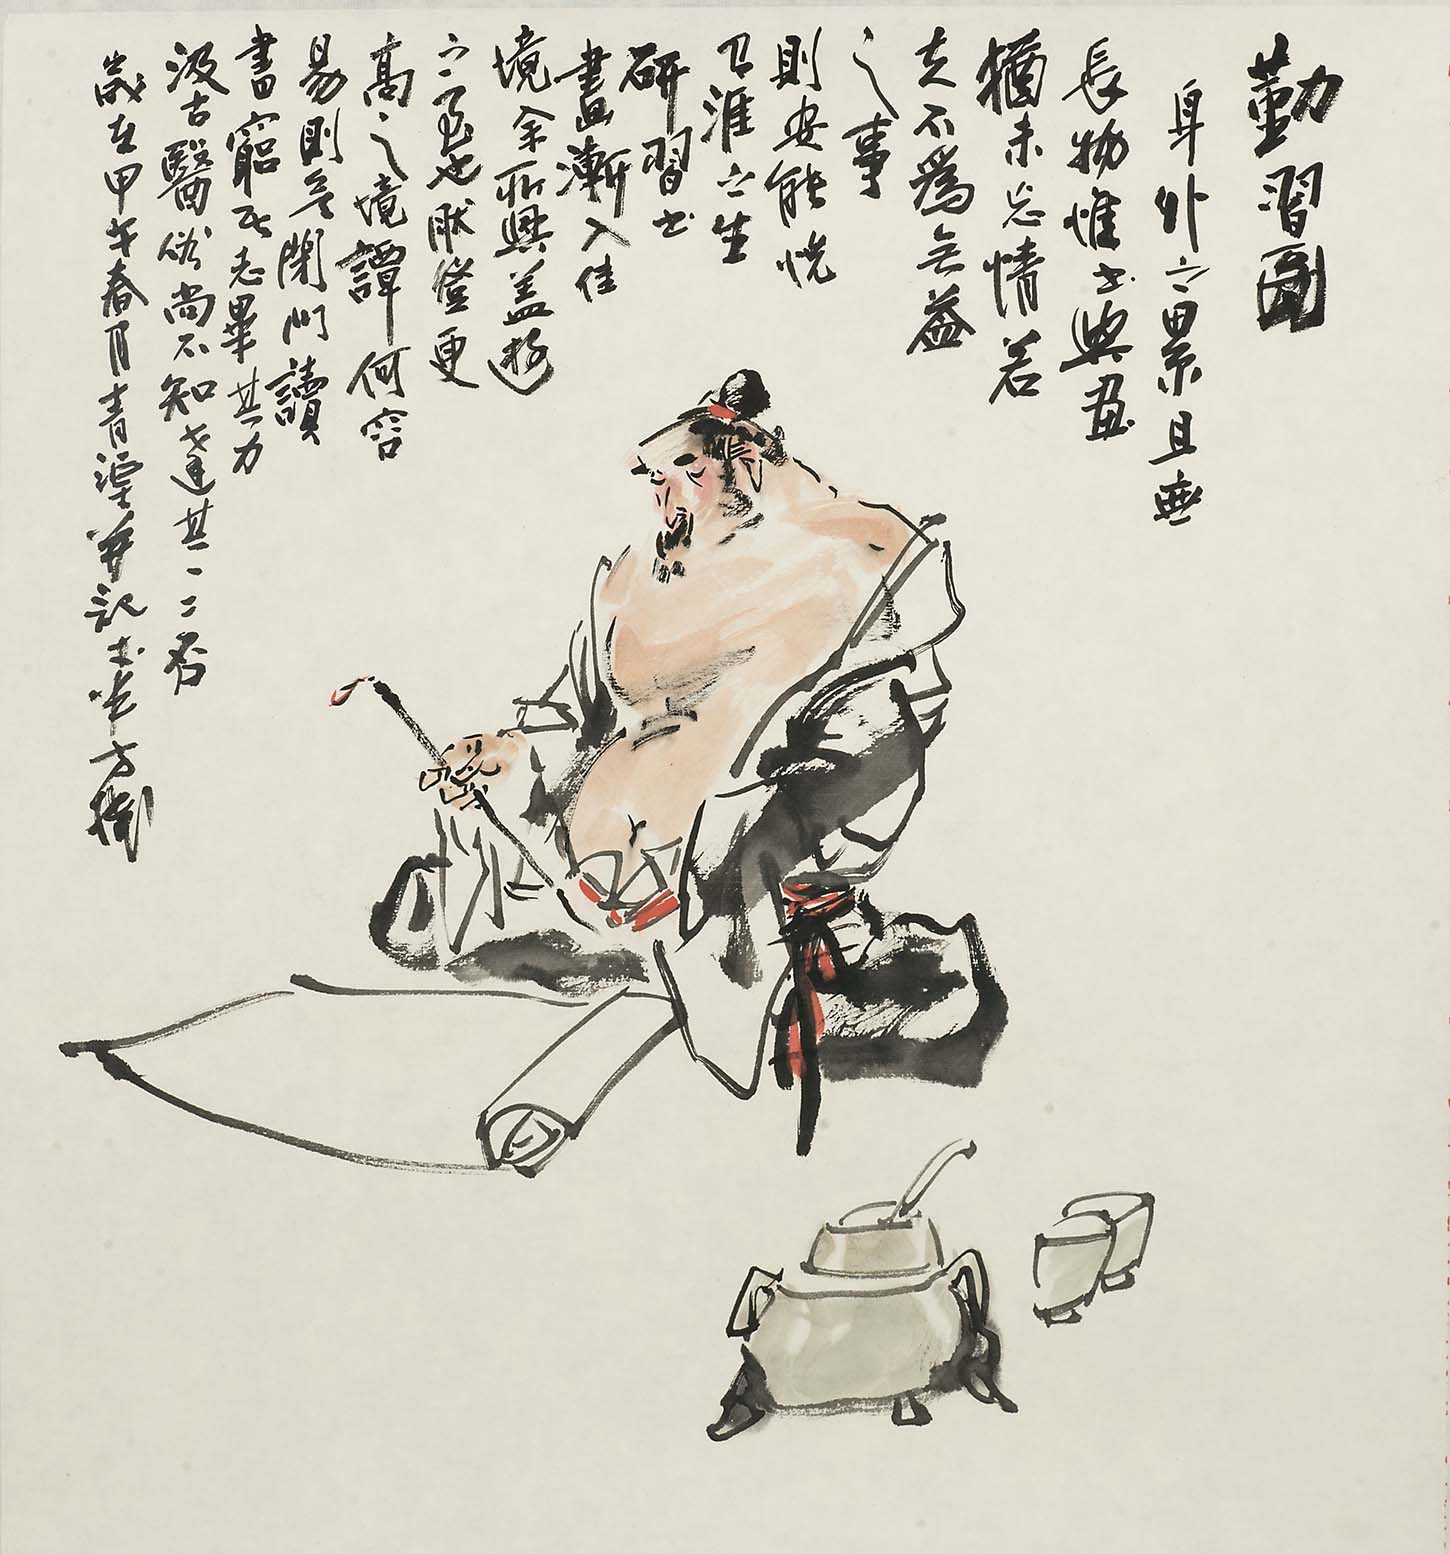 勤習圖
身外之累且無
長物惟書與畫
猶未忘情若
夫不爲無益
之事
則安能悦
有涯之生
研習書
畫漸入佳
境余所興蓋游
之藝也欣登更
高之境譚何容
易則無閉門讀
書窮吾志畢其力
汲古醫俗尚不知達其一二否
歲在甲午春月青